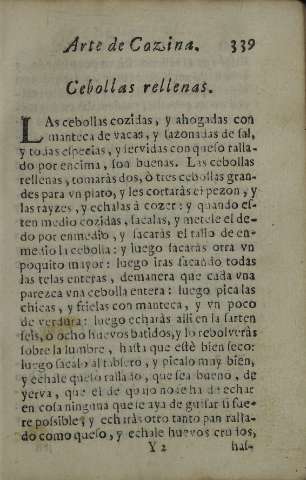 Arte de Cozina. 339
Cebollas rellenas.
LAs cebollas cozidas, y ahogadas con
manteca de vacas, y sazonadas de sal,
y todas especias, y servidas con queso ralla-
do por encima, son buenas. Las cebollas
rellenas, tomaràs dos, ò tres cebollas gran-
des para vn plato, y les cortaràs el pezon, y
las rayzes, y echalas à cozer: y quando es-
ten medio cozidas, sacalas, y metele el de-
do por enmedio, y sacaràs el tallo de en-
medio la cebolla: y luego sacaràs otra vn
poquito mayor: luego iràs sacando todas
las telas enteras, demanera que cada vna
parezca vna cebolla entera: luego pica las
chicas, y frielas con manteca, y vn poco
de verdura: luego echaràs alli en la sarten
seis, ò ocho huevos batidos, y lo rebolveràs
sobre la lumbre, hasta que estè bien seco:
luego sacalo al tablero, y picalo muy bien,
y echale queso rallado, que sea bueno, de
yerva, que el de no se ha de echar
en cosa ninguna que se aya de guisar si fue-
re possible; y echiràs otro tanto pan ralla-
do como queso, y echale huevos crudos,
Y 2 has-